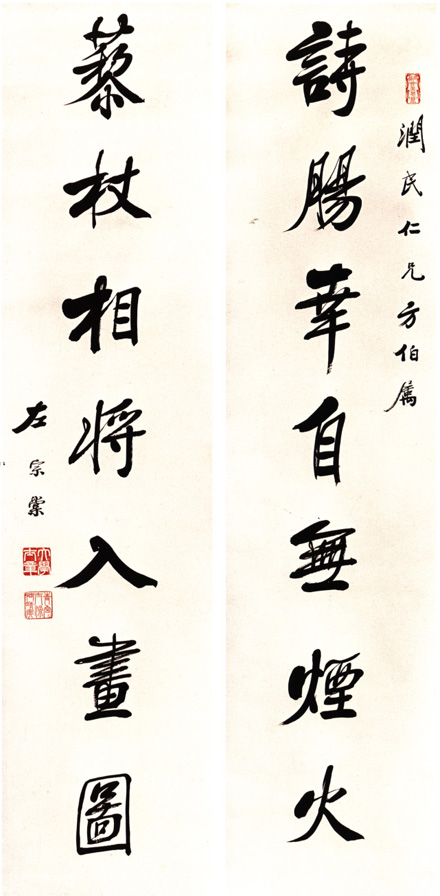 潤民仁兄方伯屬
詩腸幸自無煙火
藜杖相將入畫圖
左宗棠
大學士章